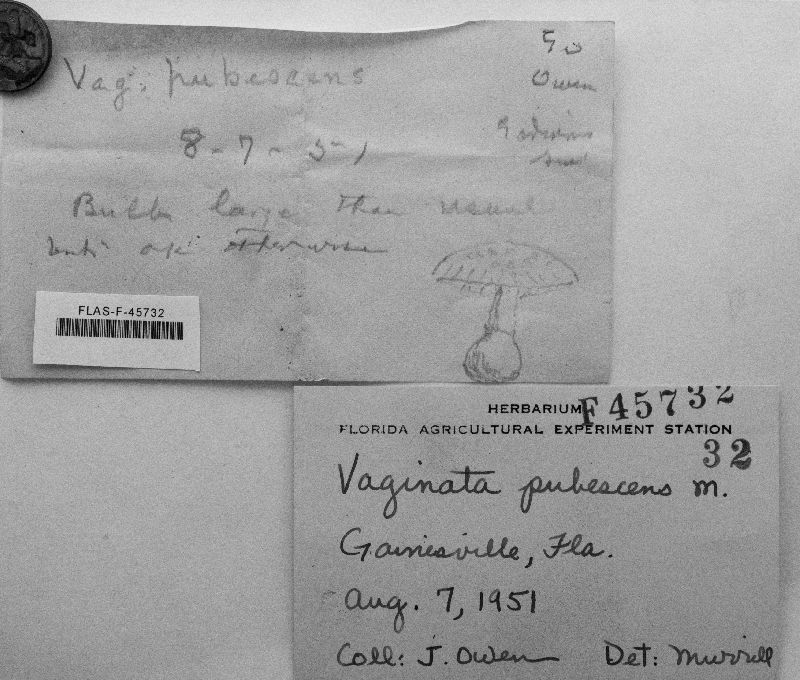 Vag. pubescens
Owen
8-7-51
Bulb large than usual
but ok otherwise
FLAS-F-45732
HERBARIUM F45732
FLORIDA AGRICULTURAL EXPERIMENT STATION
32
Vaginata pubescens M.
Gainesville, Fla.
Aug. 7, 1951
Coll: J. Owen Det: Murrill